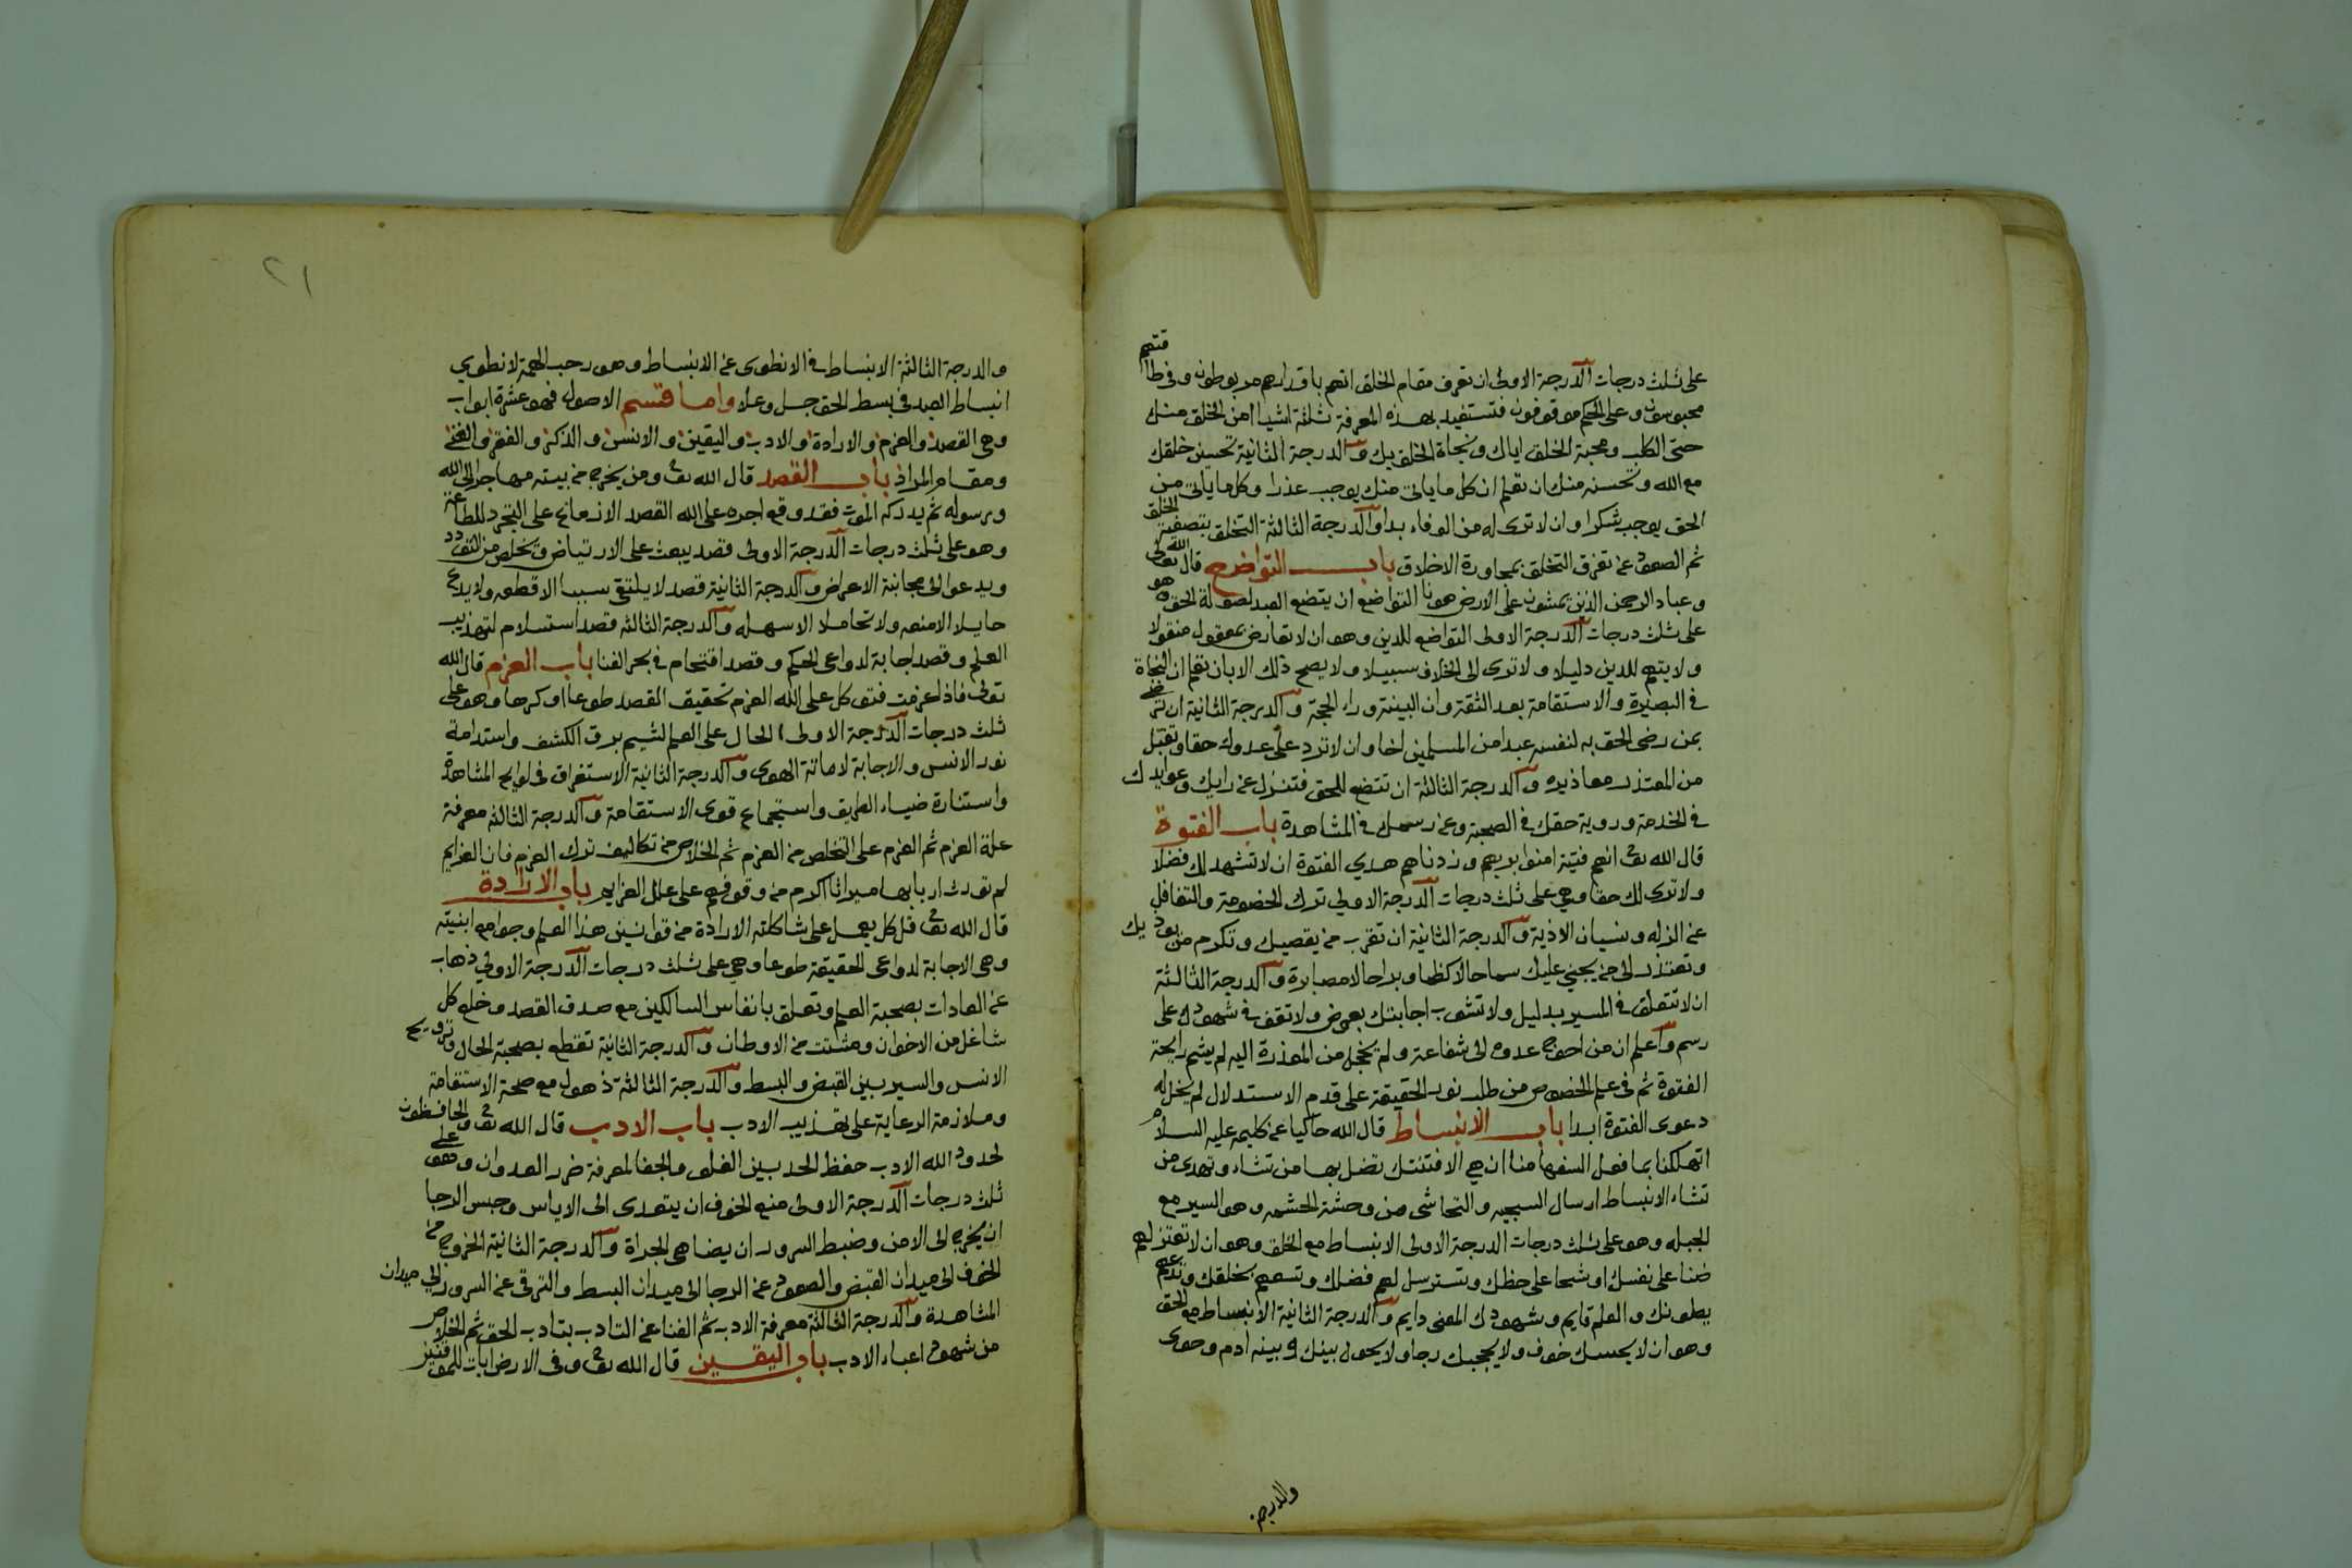 على ثلث درجات الدرجة الاولى ان تعرف مقام الخلق انهم باقدارهم مربوطون وفي طاقتهم
محبوسون وعلى الحكم موقوفون فتستفيد بهذه المعرفة ثلثة اشيا امن الخلق منك
حتى الكلب ومحبة الخلق اياك ونجاة الخلق بك والدرجة الثانية تحسين خلقك
مع الله وتحسنه منك ان تعلم ان كل ما ياتى منك يوجب عذرا وكل ما ياتى من
الحق يوجب شكرا وان لا ترى له من الوفاء بدا والدرجة الثالثة التخلق بتصفية الخلق
ثم الصعود عن تفرق التخلق بمجاوزة الاخلاق باب التواضع قال الله تعالى
وعباد الرحمن الذين يمشون على الارض هونا التواضع ان يتضع العبد لصولة الحق وهو
على ثلث درجات الدرجة الاولى التواضع للدين وهو ان لا تعارض بمعقول منقولا
ولا يتهم للدين دليلا ولا ترى الى الخلاف سبيلا ولا يصح ذلك الا بان تعلم ان النجاة
في البصيرة والاستقامة بعد الثقة وان البينة وراء الحجة والدرجة الثانية ان ترضى
بمن رضى الحق به لنفسه عبدا من المسلمين اخا وان لا ترد على عدوك حقا وتقبل
من المعتذر معاذيره والدرجة الثالثة ان تتضع للحق فتنزل عن رايك وعوايدك
في الخدمة وروية حقك في الصحبة وعن رسمك في المشاهدة باب الفتوة
قال الله تعا انهم فتية امنوا بربهم وزدناهم هدي الفتوة ان لا تشهد لك فضلا
ولا ترى لك حقا وهي على ثلث درجات الدرجة الاولي ترك الخصومة والتغافل
عن الزله ونسيان الاذية والدرجة الثانية ان تقرب من يقصيك وتكرم من يوذيك
وتعتذر الى من يجني عليك سماحا لا كظما وبراحا لا مصابرة والدرجة الثالثة
ان لا تتعلق في المسير بدليل ولا تشوب اجابتك بعوض ولا تقف في شهودك على
رسم واعلم ان من احوج عدوه الى شفاعة ولم يخجل من المعذرة اليه لم يشم رايحة
الفتوة ثم في علم الخصوص من طلب نور الحقيقة على قدم الاستدلال لم يحل له
دعوى الفتوة ابدا باب الانبساط قال الله حاكيا عن كليمه عليه السلام
اتهلكنا بما فعل السفها منا ان هي الا فتنتك تضل بها من تشاء وتهدى من
تشاء الانبساط ارسال السجيه والتحاشى من وحشة الحشمه وهو السير مع
الجبله وهو على ثلث درجات الدرجة الاولى الانبساط مع الخلق وهو ان لا تعتزلهم
ضنا على نفسك او شحا على حظك وتسترسل لهم فضلك وتسعهم بخلقك وتدعهم
يطونك والعلم قايم وشهودك المعنى دايم والدرجة الثانية الانبساط مع الحق
وهو ان لا يحبسك خوف ولا يحجبك رجا ولا يحول بينك وبينه ادم وحوى
والدرجة
٢١
والدرجة الثالثة الانبساط في الانطوى عن الانبساط وهو رحب الهمة لانطوي
انبساط العبد في بسط الحق جل وعلا واما قسم الاصول فهو عشرة ابواب
وهي القصد والعزم والارادة والادب واليقين والانس والذكر والفقر والغنى
ومقام المراد باب القصد قال الله تعا ومن يخرج من بيته مهاجرا الى الله
ورسوله ثم يدركه الموت فقد وقع اجره على الله القصد الازماع على التجرد للطاعة
وهو على ثلث درجات الدرجة الاولى قصد يبعث على الارتياض ويخلص من التردد
ويدعو الى مجانبة الاعراض والدرجة الثانية قصد لا يلتقى سببا الا قطعه ولا يدع
حايلا الا منعه ولا تحاملا الا سهله والدرجة الثالثه قصد استسلام لتهذيب
العلم وقصد اجابة لدواعى الحكم وقصد اقتحام في بحر الفنا باب العزم قال الله
تعالى فاذا عزمت فتوكل على الله العزم تحقيق القصد طوعا او كرها وهو على
ثلث درجات الدرجة الاولى ابا الحال على العلم لشيم برق الكشف واستدامة
نور الانس والاجابة لاماتة الهوى والدرجة الثانية الاستغراق في لوايح المشاهدة
واستنارة ضياء الطريق واستجماع قوى الاستقامة والدرجة الثالثه معرفة
علة العزم ثم العزم على التخلص من العزم ثم الخلاص من تكاليف ترك العزم فان العزايم
لم تورث اربابها ميراثا اكرم من وقوفهم على علل العزايم باب الارادة
قال الله تعا قل كل يعمل على شاكلته الارادة من قوانين هذا العلم وجوامع ابنيته
وهى الاجابة لدواعى الحقيقة طوعا وهي على ثلث درجات الدرجة الاولي ذهاب
عن العادات بصحبة العلم وتعلق بانفاس السالكين مع صدق القصد وخلع كل
شاغل من الاخوان ومشتت من الاوطان والدرجة الثانية تقطع بصحبة الحال وترويح
الانس والسير بين القبض والبسط والدرجة الثالثة ذهول مع صحة الاستقامة
وملازمة الرعاية على تهذيب الادب باب الادب قال الله تعا والحافظون
لحدود الله الادب حفظ الحد بين الغلو والجفا لمعرفة ضرر العدوان وهو على
ثلث درجات الدرجة الاولى منع الخوف ان يتعدى الى الاياس وحبس الرجا
ان يخرج الى الامن وضبط السرور ان يضاهى الجراة والدرجة الثانية الخروج من
الخوف الى ميدان القبض والصعود عن الرجا الى ميدان البسط والترقى عن السرور الي ميدان
المشاهدة والدرجة الثالثة معرفة الادب ثم الفنا عن التادب بتادب الحق ثم الخلاص
من شهود اعباء الادب باب اليقين قال الله تعا وفى الارض ايات للموقنين